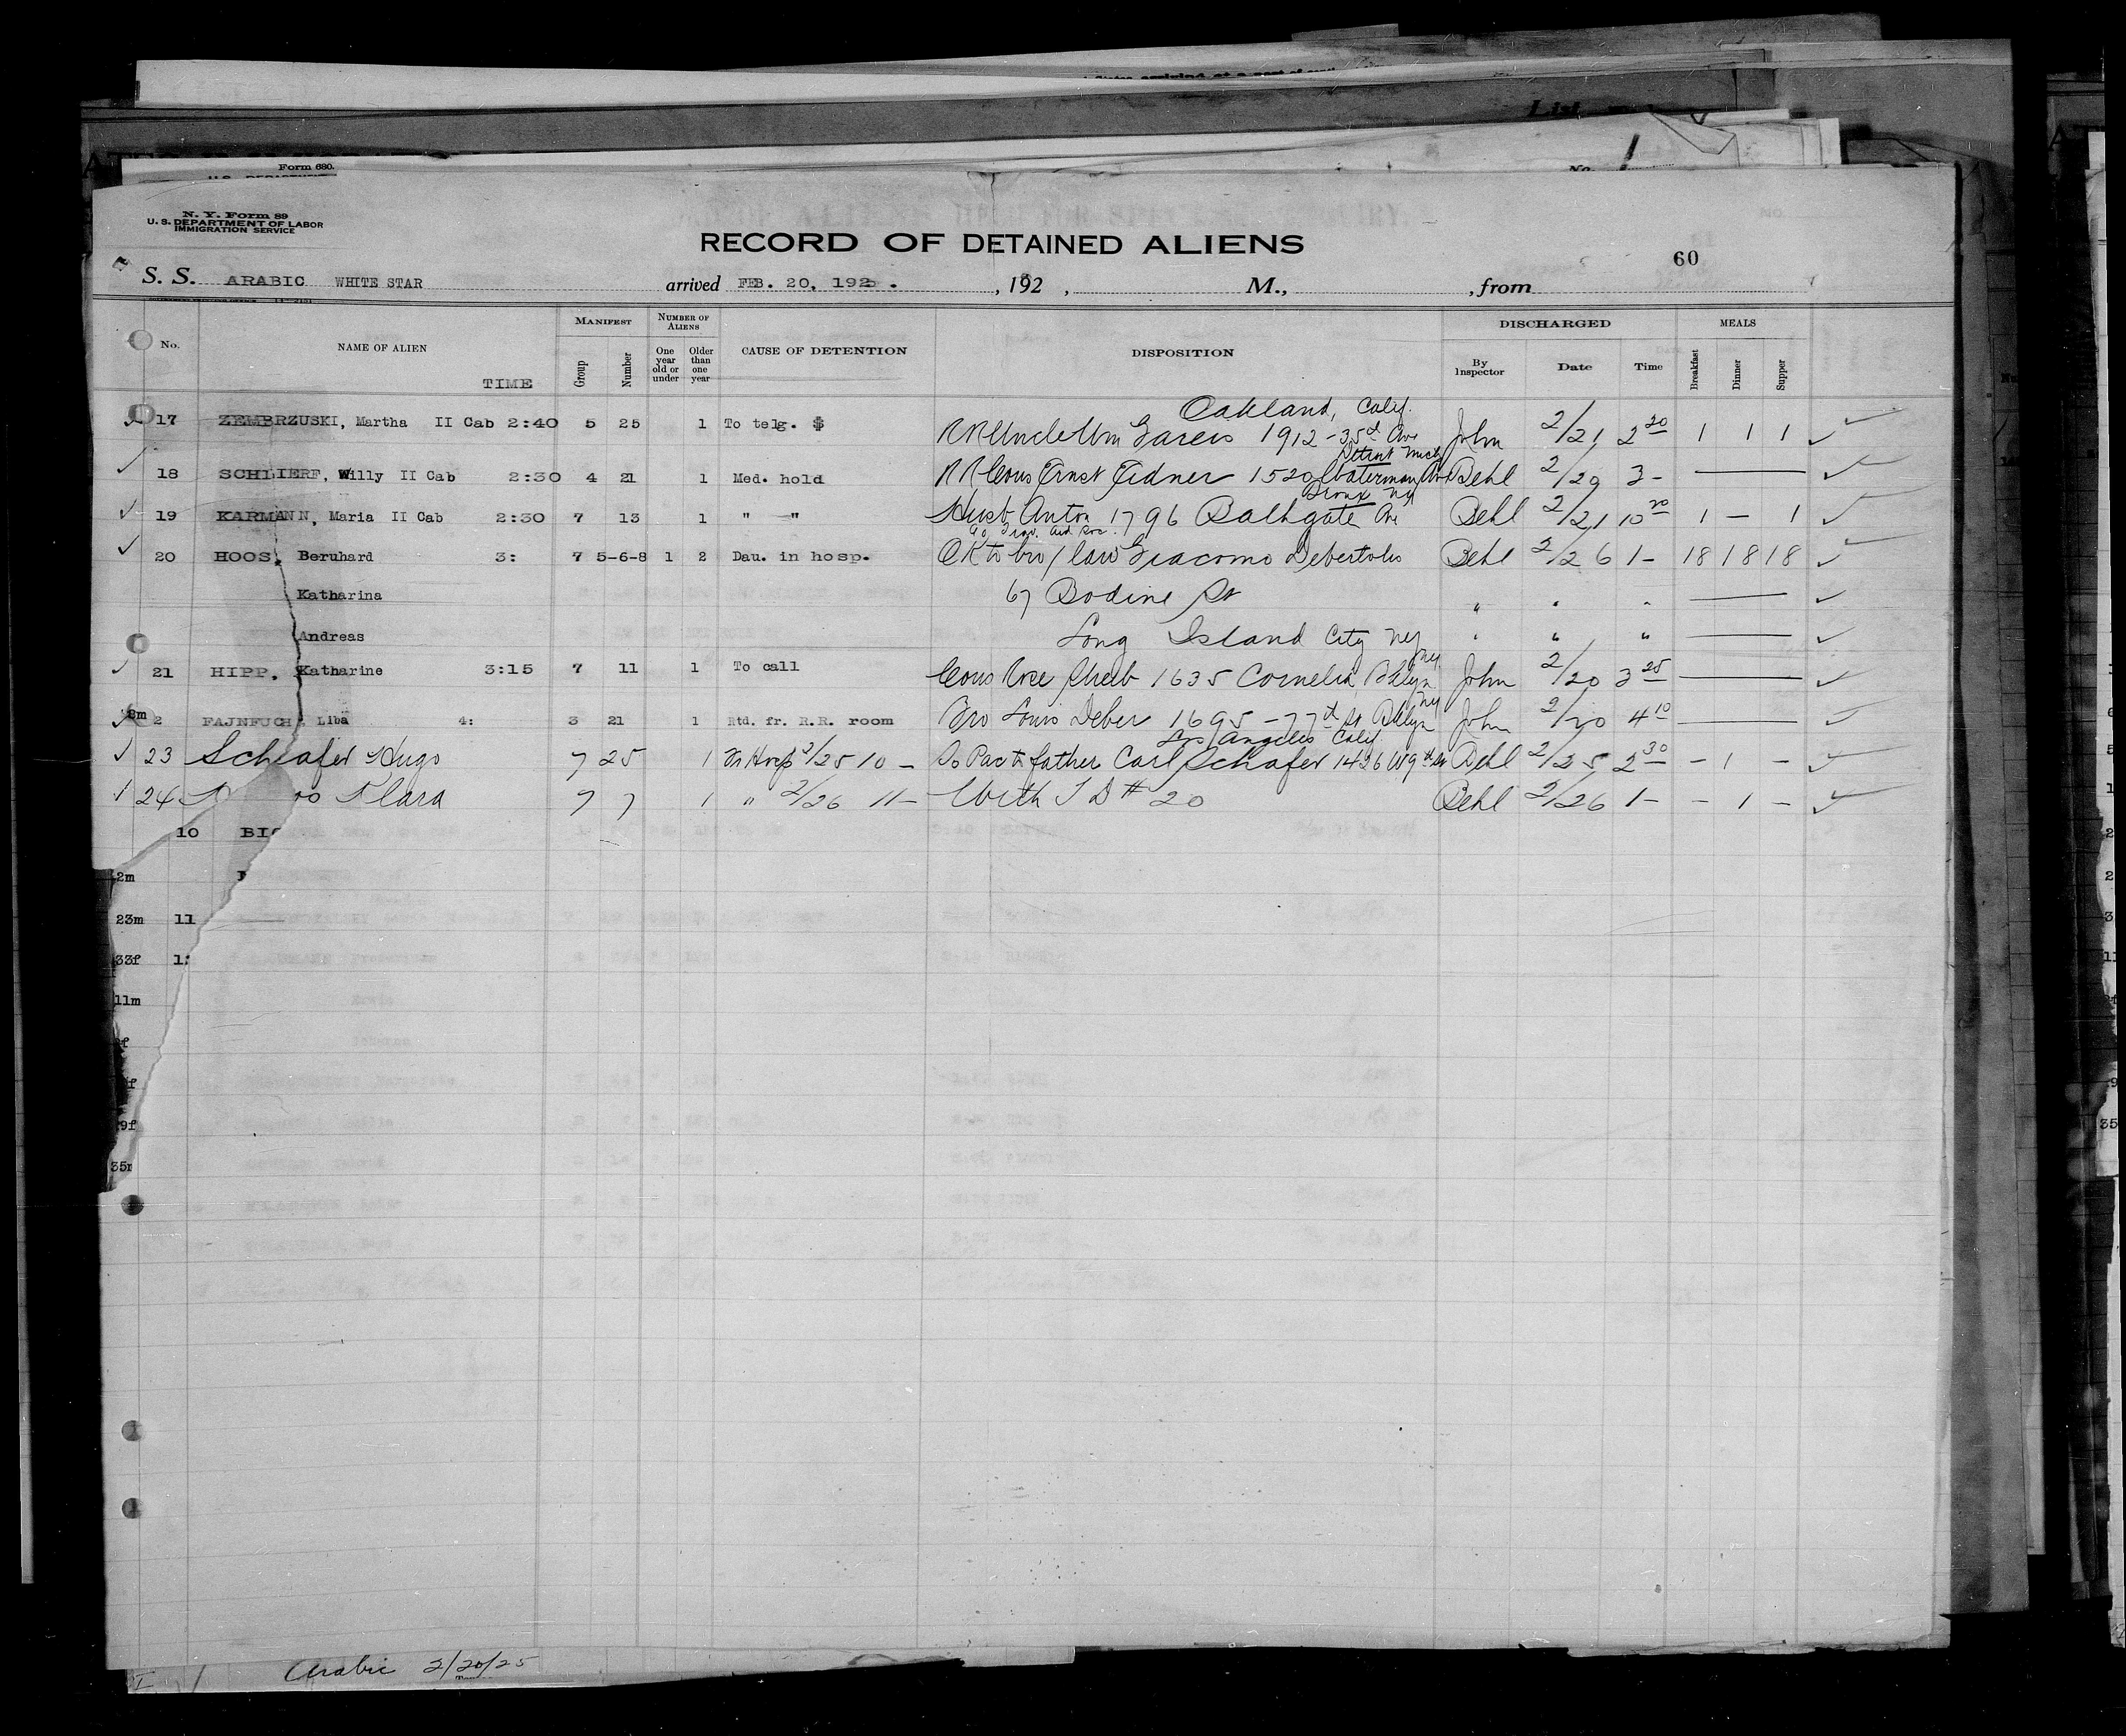 Form 680.
List
No.
N. Y. Form 89
U. S. DEPARTMENT OF LABOR
IMMIGRATION SERVICE
RECORD OF DETAINED ALIENS
60
S. S. ARABIC WHITE STAR arrived FEB. 20, 1925. , 192 , M., , from
No. NAME OF ALIEN TIME MANIFEST Group Number NUMBER OF ALIENS One year old or under Older than one year CAUSE OF DETENTION DISPOSITION DISCHARGED By Inspector Date Time MEALS Breakfast Dinner Supper
Oakland, Calif.
17 ZEMBRZUSKI, Martha II Cab 2:40 5 25 1 To telg. $ RR Uncle Wm Gareis 1912-35th Ave John 2/21 2 20 1 1 1
Detroit Mich
18 SCHLIERF, Willy II Cab 2:30 4 21 1 Med. hold RR Cous Ernst Fidner 1520 Waterman Ave Behl 2/20 3-
Bronx NY
19 KARMANN, Maria II Cab 2:30 7 13 1 " — " Husb Anton 1796 Bathgate Ave Behl 2/21 10 20 1 — 1
Trav. Aid Soc.
20 HOOS, Beruhard 3: 7 5-6-8 1 2 Dau. in hosp. OK to bro/law Giacomo Debertolis Behl 2/26 1- 18 18 18
Katharina 67 Bodine St " " "
Andreas Long Island City NY " " "
21 HIPP, Katharine 3:15 7 11 1 To call Cous Rose 1635 Cornelia Bklyn NY John 2/20 3 25
8m 2 FAJNFUCH, Liba 4: 3 21 1 Rtd. fr. R.R. room Bro Louis Deber 1695-77th St Bklyn NY John 2/20 4 10
Los Angeles Calif.
23 Schafer Hugo 7 25 1 Fr Hosp 2/25 10- So Pac to father Carl Schafer 1426 W 9th St Behl 2/25 2 30 - 1 -
24 Klara 7 7 1 " 2/26 11- With T D # 20 Behl 2/26 1- - 1 -
10
2m
23m 11
33f
11m
9f
Arabic 2/20/25